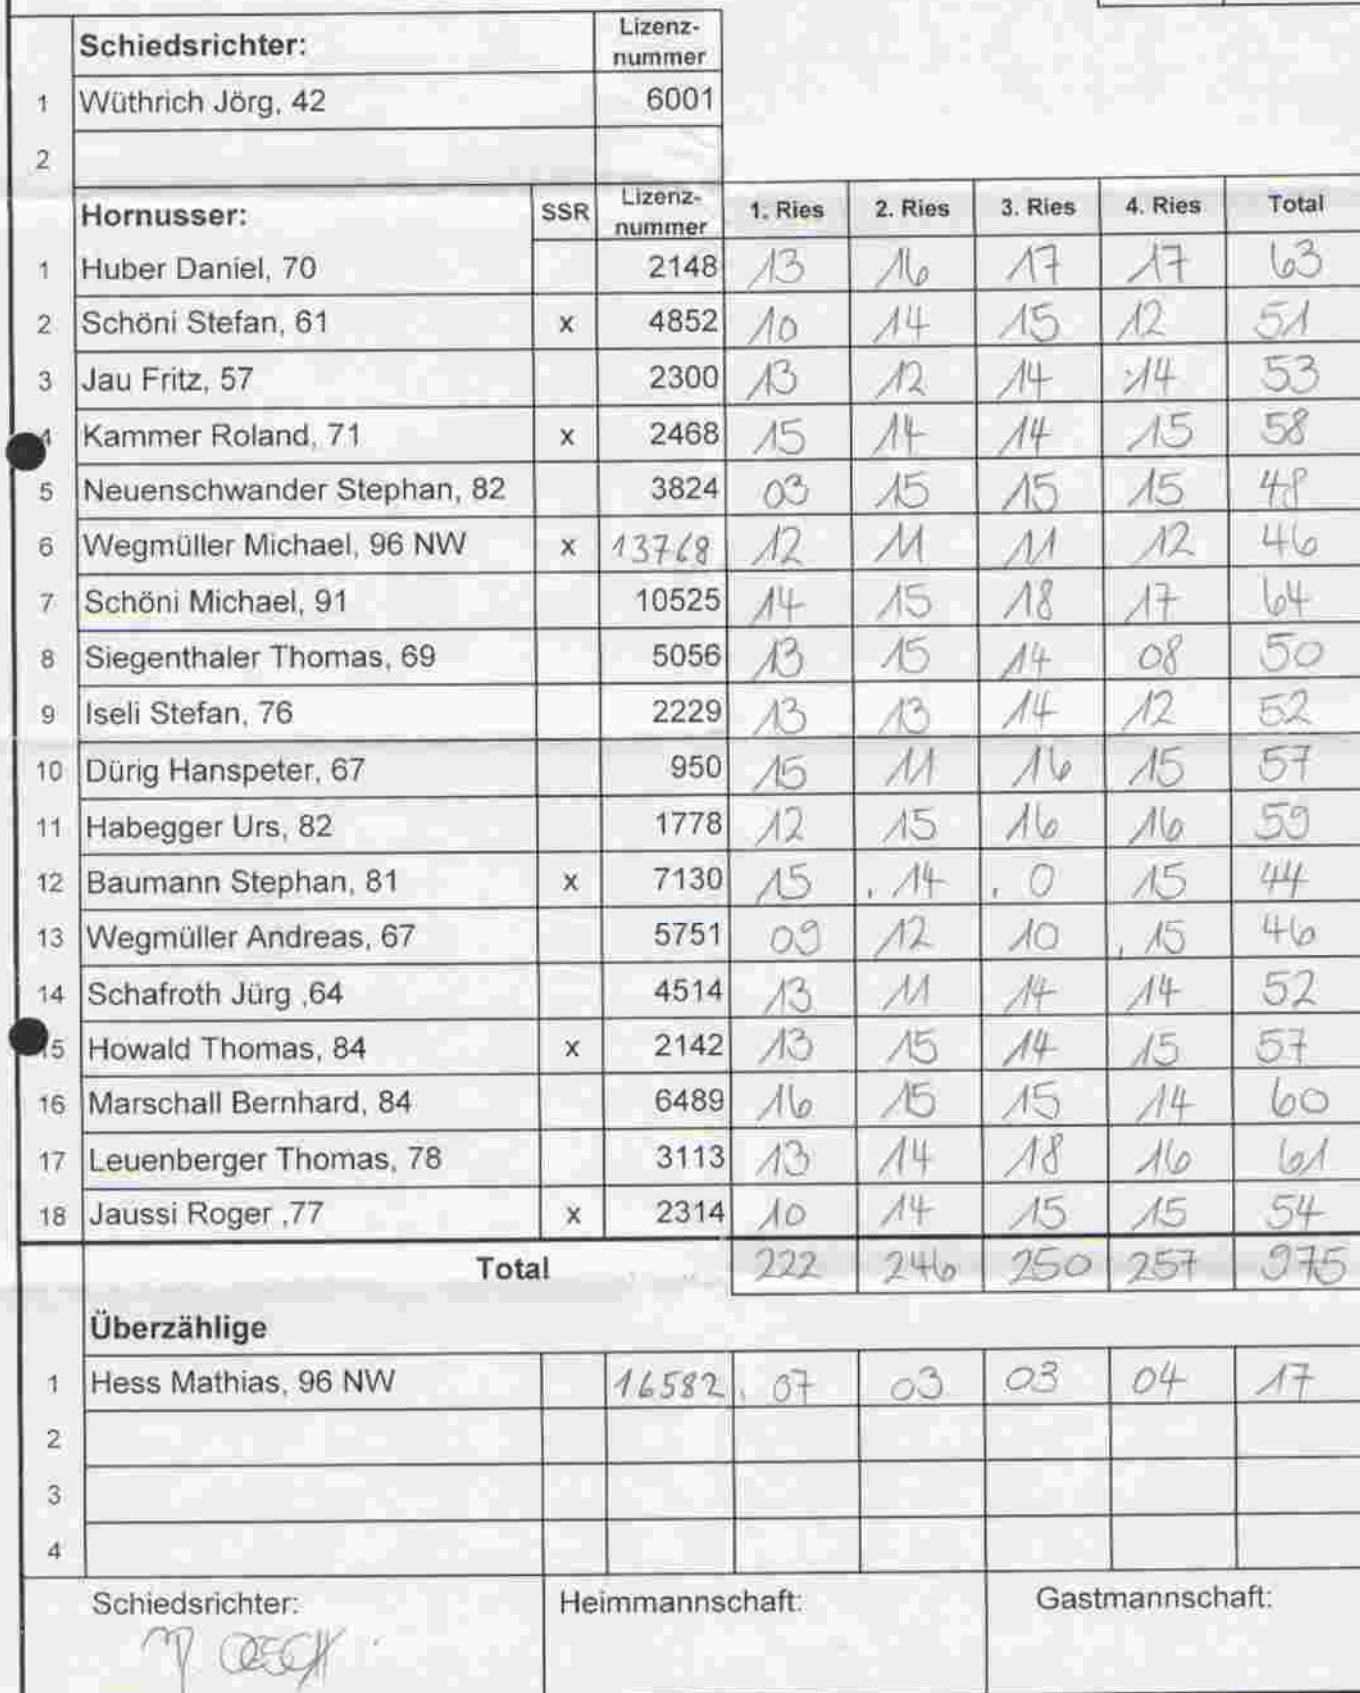 Schiedsrichter: Lizenz-nummer
1 Wüthrich Jörg, 42 6001
2
Hornusser: SSR Lizenz-nummer 1. Ries 2. Ries 3. Ries 4. Ries Total
1 Huber Daniel, 70 2148 13 16 17 17 63
2 Schöni Stefan, 61 x 4852 10 14 15 12 51
3 Jau Fritz, 57 2300 13 12 14 14 53
4 Kammer Roland, 71 x 2468 15 14 14 15 58
5 Neuenschwander Stephan, 82 3824 03 15 15 15 48
6 Wegmüller Michael, 96 NW x 13768 12 11 11 12 46
7 Schöni Michael, 91 10525 14 15 18 17 64
8 Siegenthaler Thomas, 69 5056 13 15 14 08 50
9 Iseli Stefan, 76 2229 13 13 14 12 52
10 Dürig Hanspeter, 67 950 15 11 16 15 57
11 Habegger Urs, 82 1778 12 15 16 16 59
12 Baumann Stephan, 81 x 7130 15 . 14 . 0 15 44
13 Wegmüller Andreas, 67 5751 09 12 10 , 15 46
14 Schafroth Jürg ,64 4514 13 11 14 14 52
15 Howald Thomas, 84 x 2142 13 15 14 15 57
16 Marschall Bernhard, 84 6489 16 15 15 14 60
17 Leuenberger Thomas, 78 3113 13 14 18 16 61
18 Jaussi Roger ,77 x 2314 10 14 15 15 54
Total 222 246 250 257 975
Überzählige
1 Hess Mathias, 96 NW 16582 . 07 03 03 04 17
2
3
4
Schiedsrichter: Heimmannschaft: Gastmannschaft: